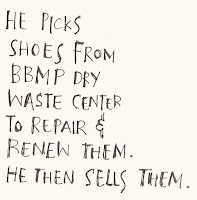 HE PICKS
SHOES FROM
BBMP DRY
WASTE CENTER
TO REPAIR &
RENEW THEM.
HE THEN SELLS THEM.